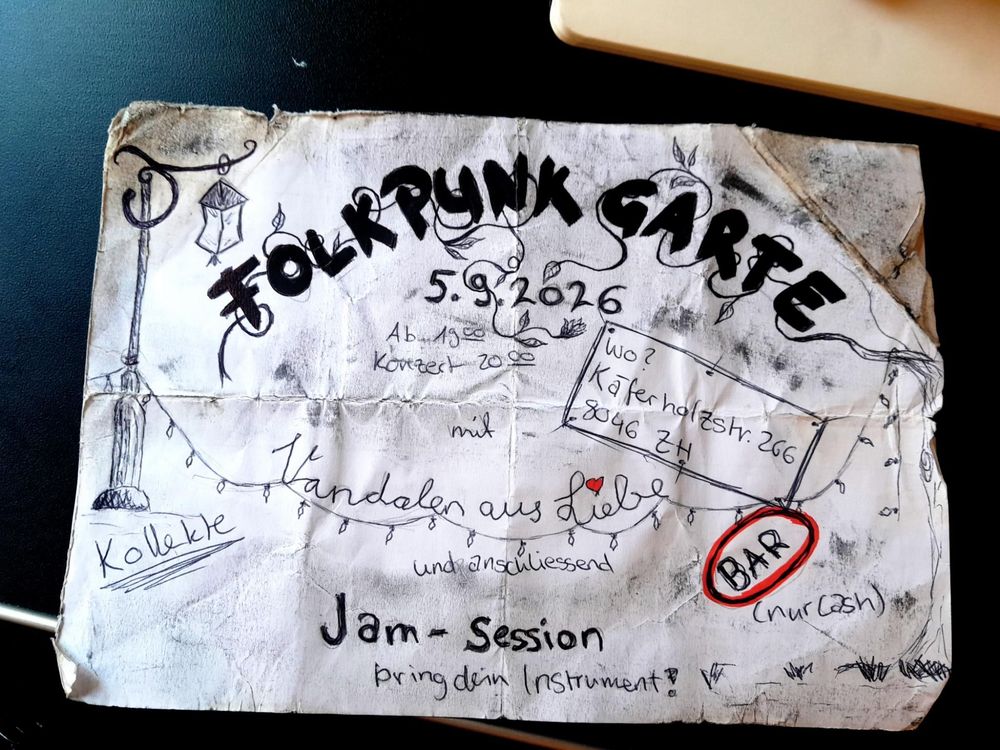 FOLKPUNK GARTE
5.9.2026
Ab 19⁰⁰
Konzert 20⁰⁰
wo?
Käferholzstr. 266
8046 ZH
mit
Vandalen aus Liebe
Kollekte
und anschliessend
BAR
(nur Cash)
Jam-Session
bring dein Instrument!